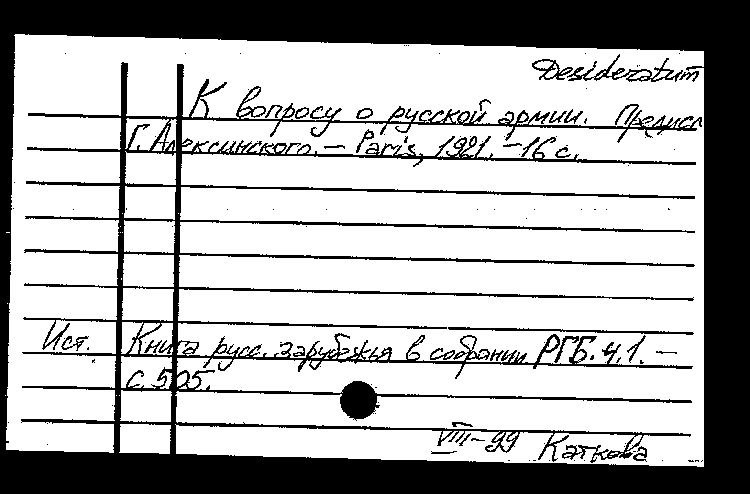 Desideratum
К вопросу о русской армии. Предисл
Г. Алексинского. — Paris, 1921. — 16 с.
Ист. Книга русс. зарубежья в собрании РГБ. Ч. 1. —
С. 505.
VIII-99 Каткова